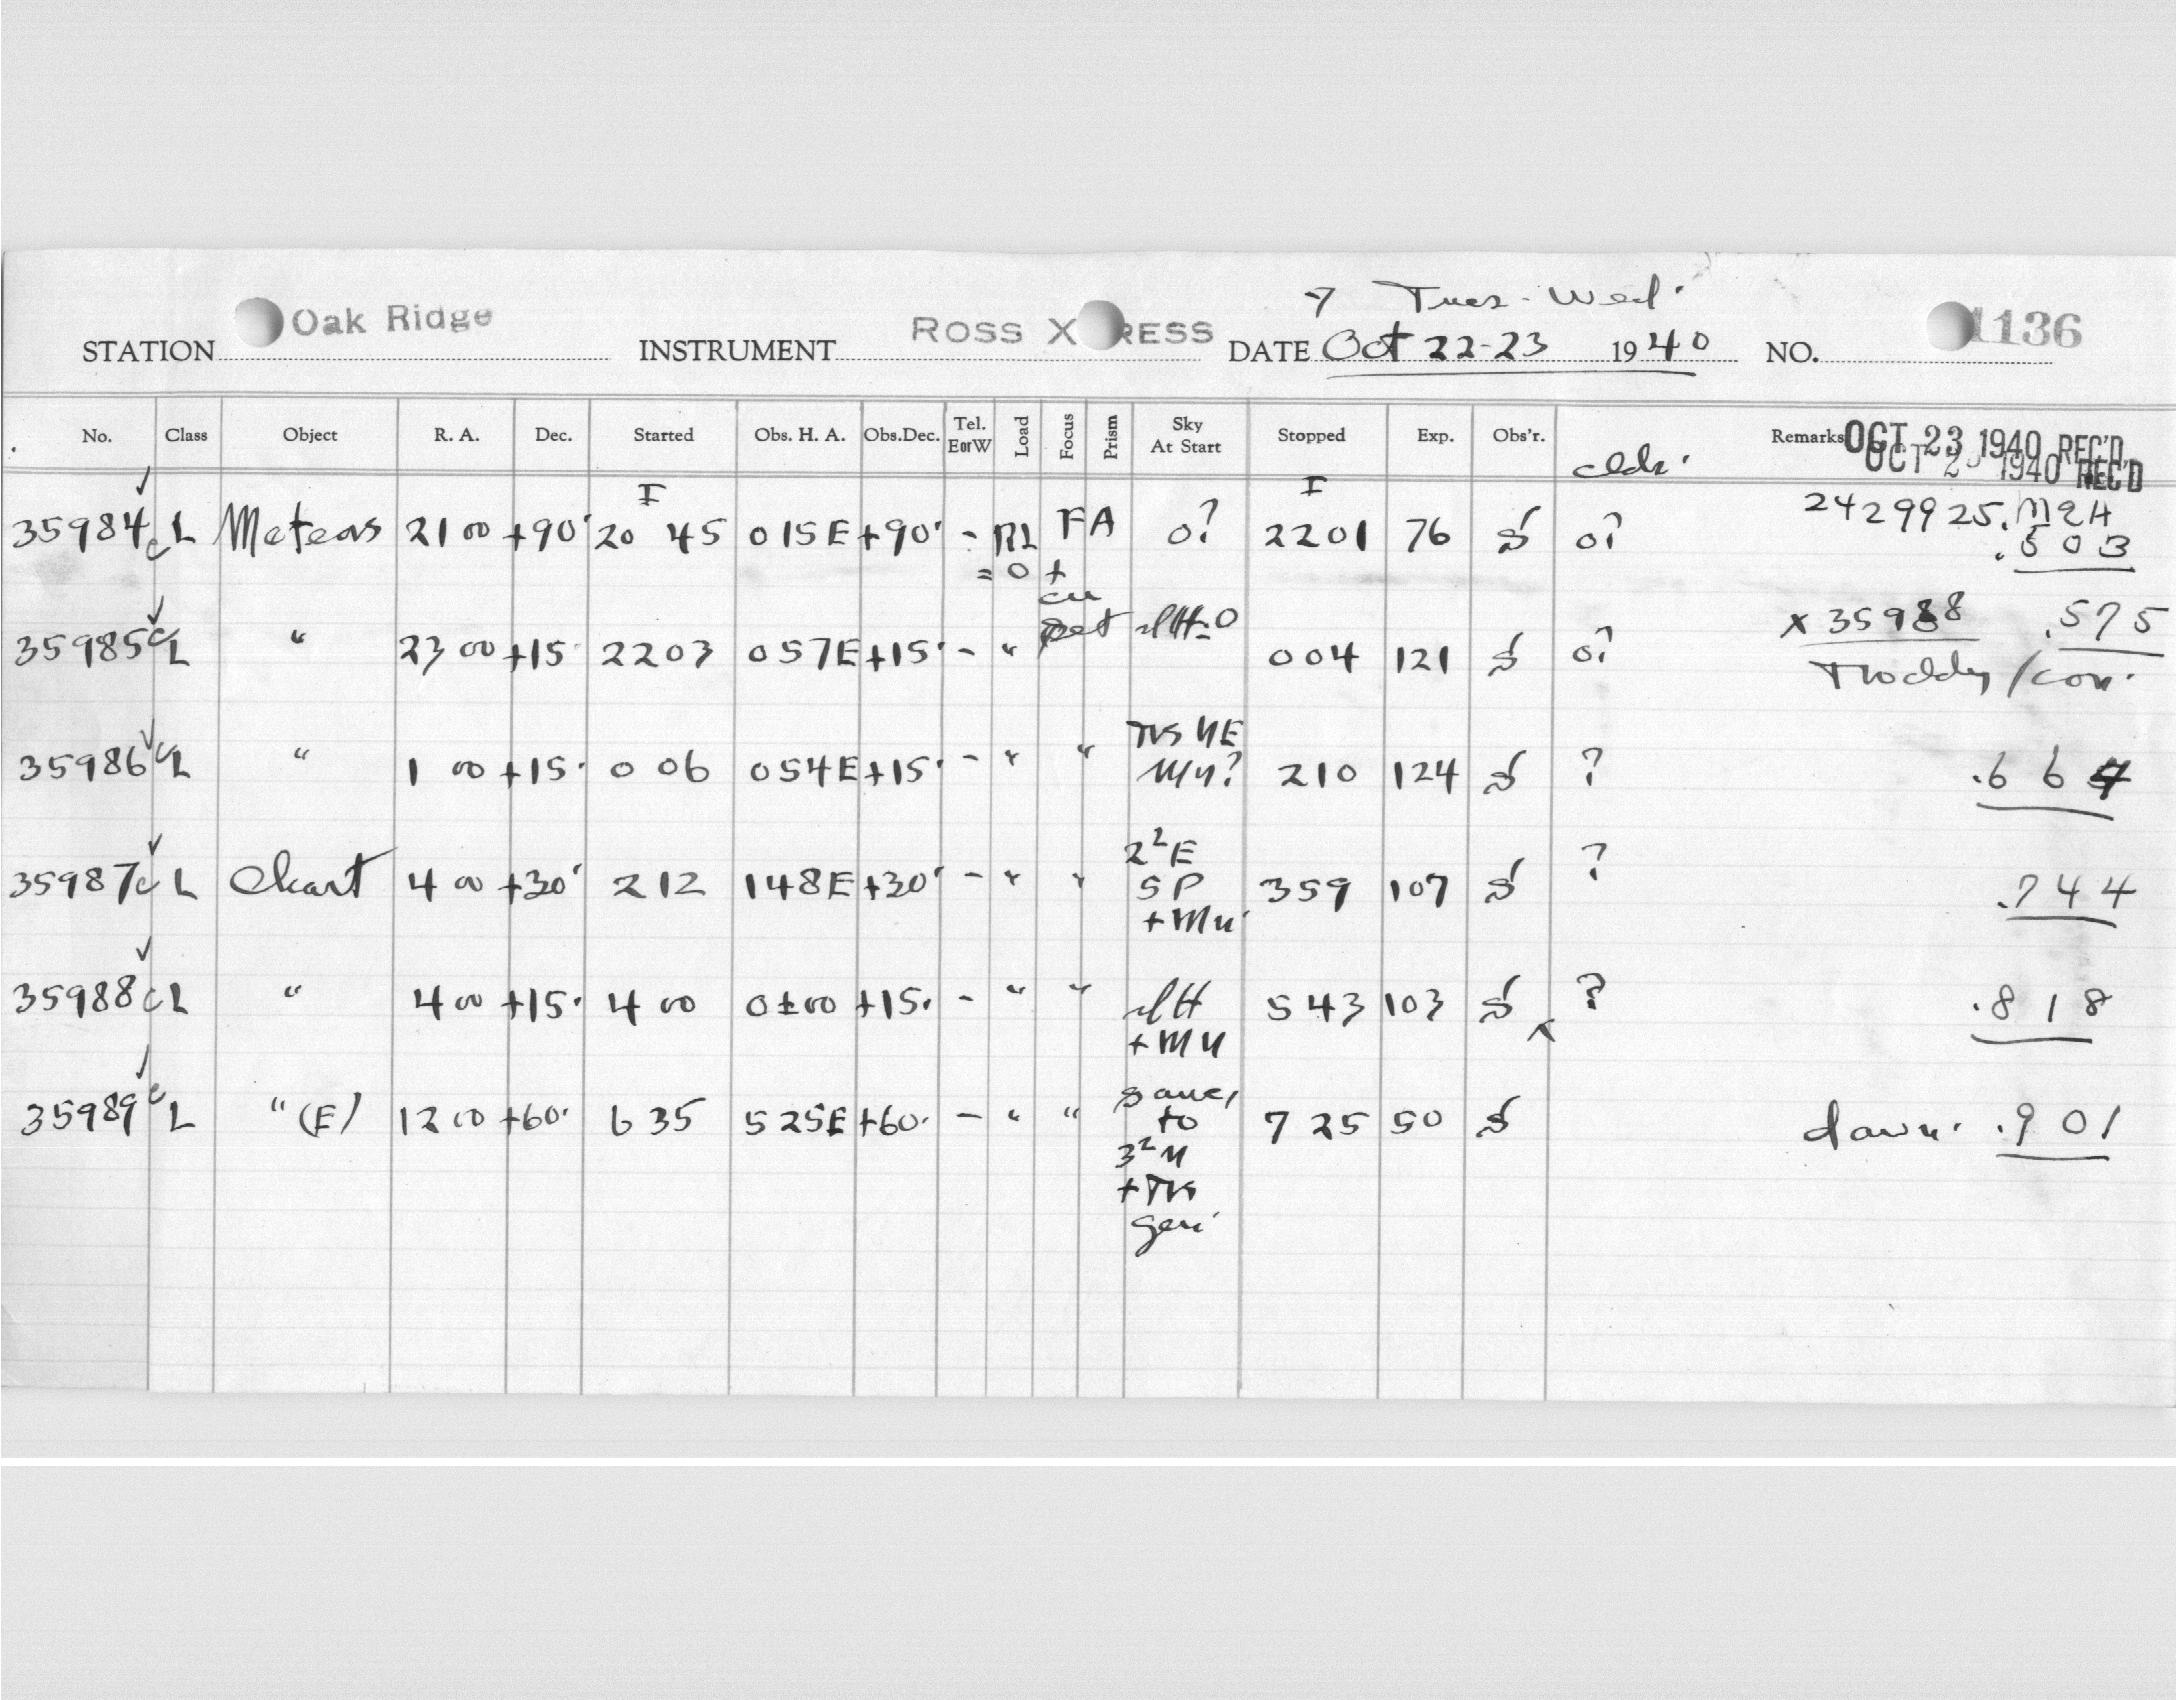 → Tues - Wed.
STATION Oak Ridge INSTRUMENT ROSS X RESS DATE Oct 22-23 1940 NO. 1136
No. Class Object R. A. Dec. Started Obs. H. A. Obs.Dec. Tel. E or W Load Focus Prism Sky At Start Stopped Exp. Obs'r. Remarks OCT 23 1940 REC'D
OCT 2 1940 REC'D
35984 c L Meteors 21 00 +90° 20 45 0 15 E +90° - RL FA 0? 22 01 76 0? 2429925.
= 0 + .503
35985 c L " 23 00 +15° 22 03 0 57 E +15° - " 0 04 121 0? x 35988 .575
/con.
35986 c L " 1 00 +15° 0 06 0 54 E +15° - " " 2 10 124 ? .664
35987 c L Chart 4 00 +30° 2 12 1 48 E +30° - " " 2² E 5 P 3 59 107 ? .744
35988 c L " 4 00 +15° 4 00 0 ± 00 +15° - " " 5 43 103 ? .818
35989 c L " (E) 12 00 +60° 6 35 5 25 E +60° - " " to 7 25 50 dawn. .901